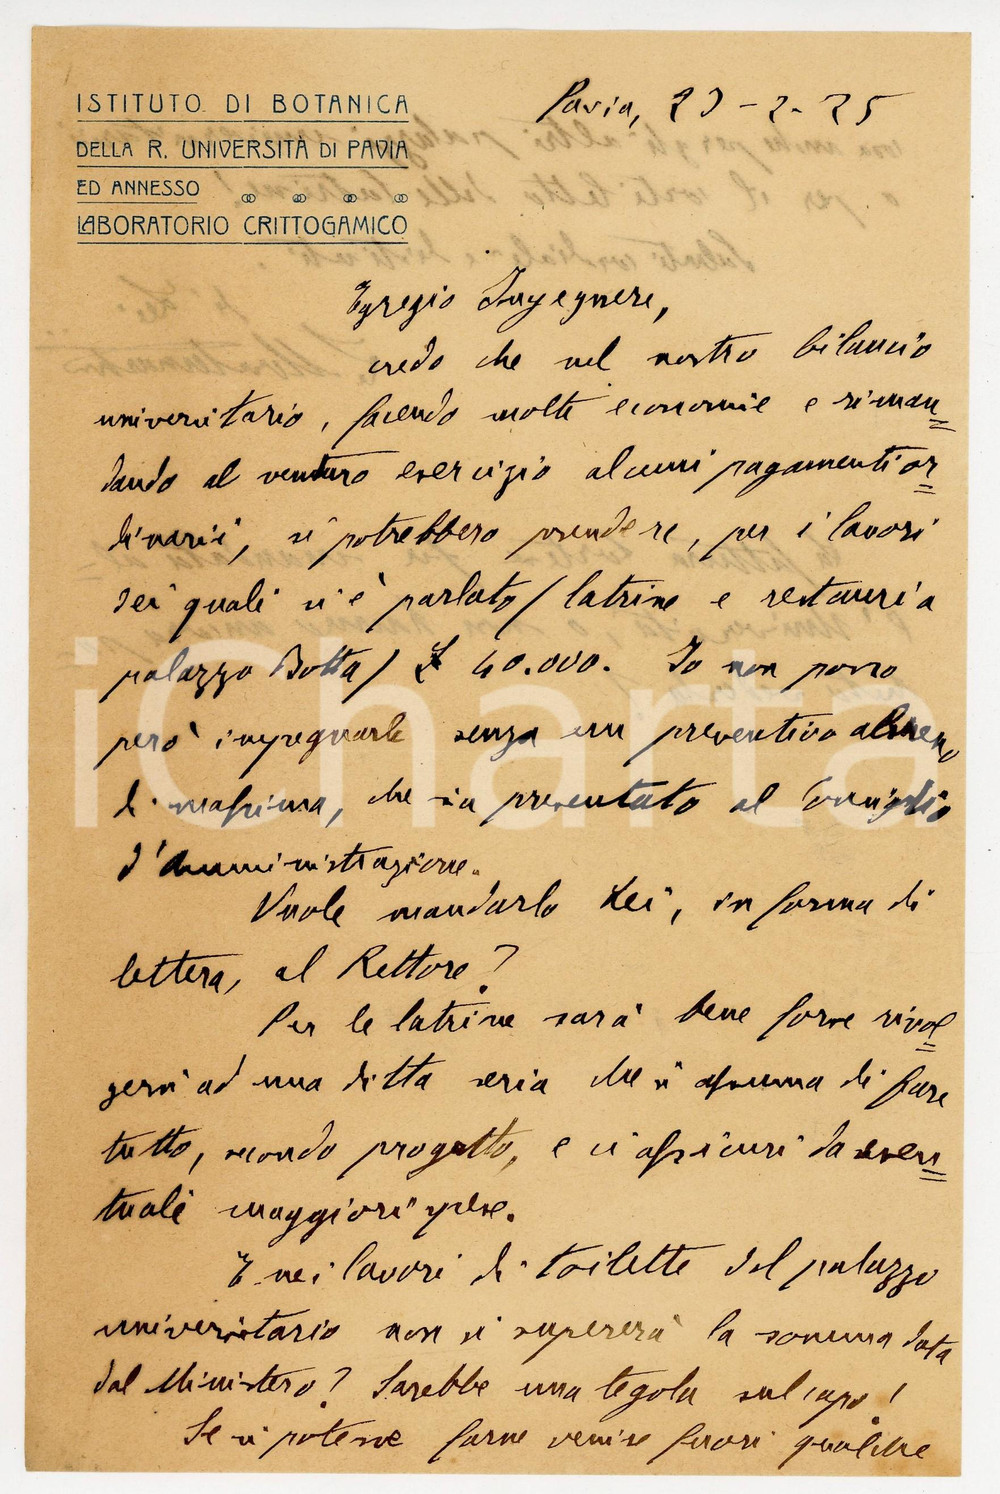 ISTITUTO DI BOTANICA
DELLA R. UNIVERSITÀ DI PAVIA
ED ANNESSO
LABORATORIO CRITTOGAMICO
Pavia, 23-2-25
Egregio Ingegnere,
credo che nel nostro bilancio
universitario, facendo molte economie e riman=
dando al venturo esercizio alcuni pagamenti or=
dinarii, si potrebbero prendere, per i lavori
dei quali si è parlato / latrine e restauri a
palazzo Botta / £ 40.000. Io non posso
però impegnarle senza un preventivo almeno
di massima, che sia presentato al Consiglio
d'Amministrazione.
Vuole mandarlo Lei, in forma di
lettera, al Rettore?
Per le latrine sarà bene forse rivol=
gersi ad una ditta seria che si assuma di fare
tutto, secondo progetto, e ci assicuri da even=
tuali maggiori spese.
E nei lavori di toilette del palazzo
universitario non si supererà la somma data
dal Ministero? Sarebbe una tegola sul capo!
Se si potesse farne venire fuori qualche
iCharta